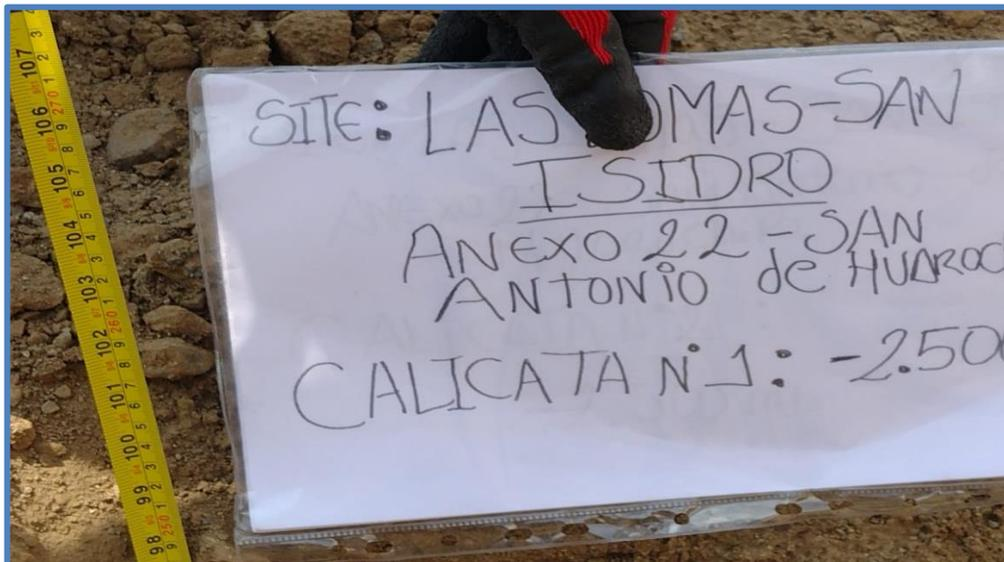 SITE: LAS OMAS-SAN
ISIDRO
ANEXO 22-SAN
ANTONIO de HUAROC
CALICATA N°1: -2.50
107
106
105
104
103
102
101
100
99
98
270
260
250